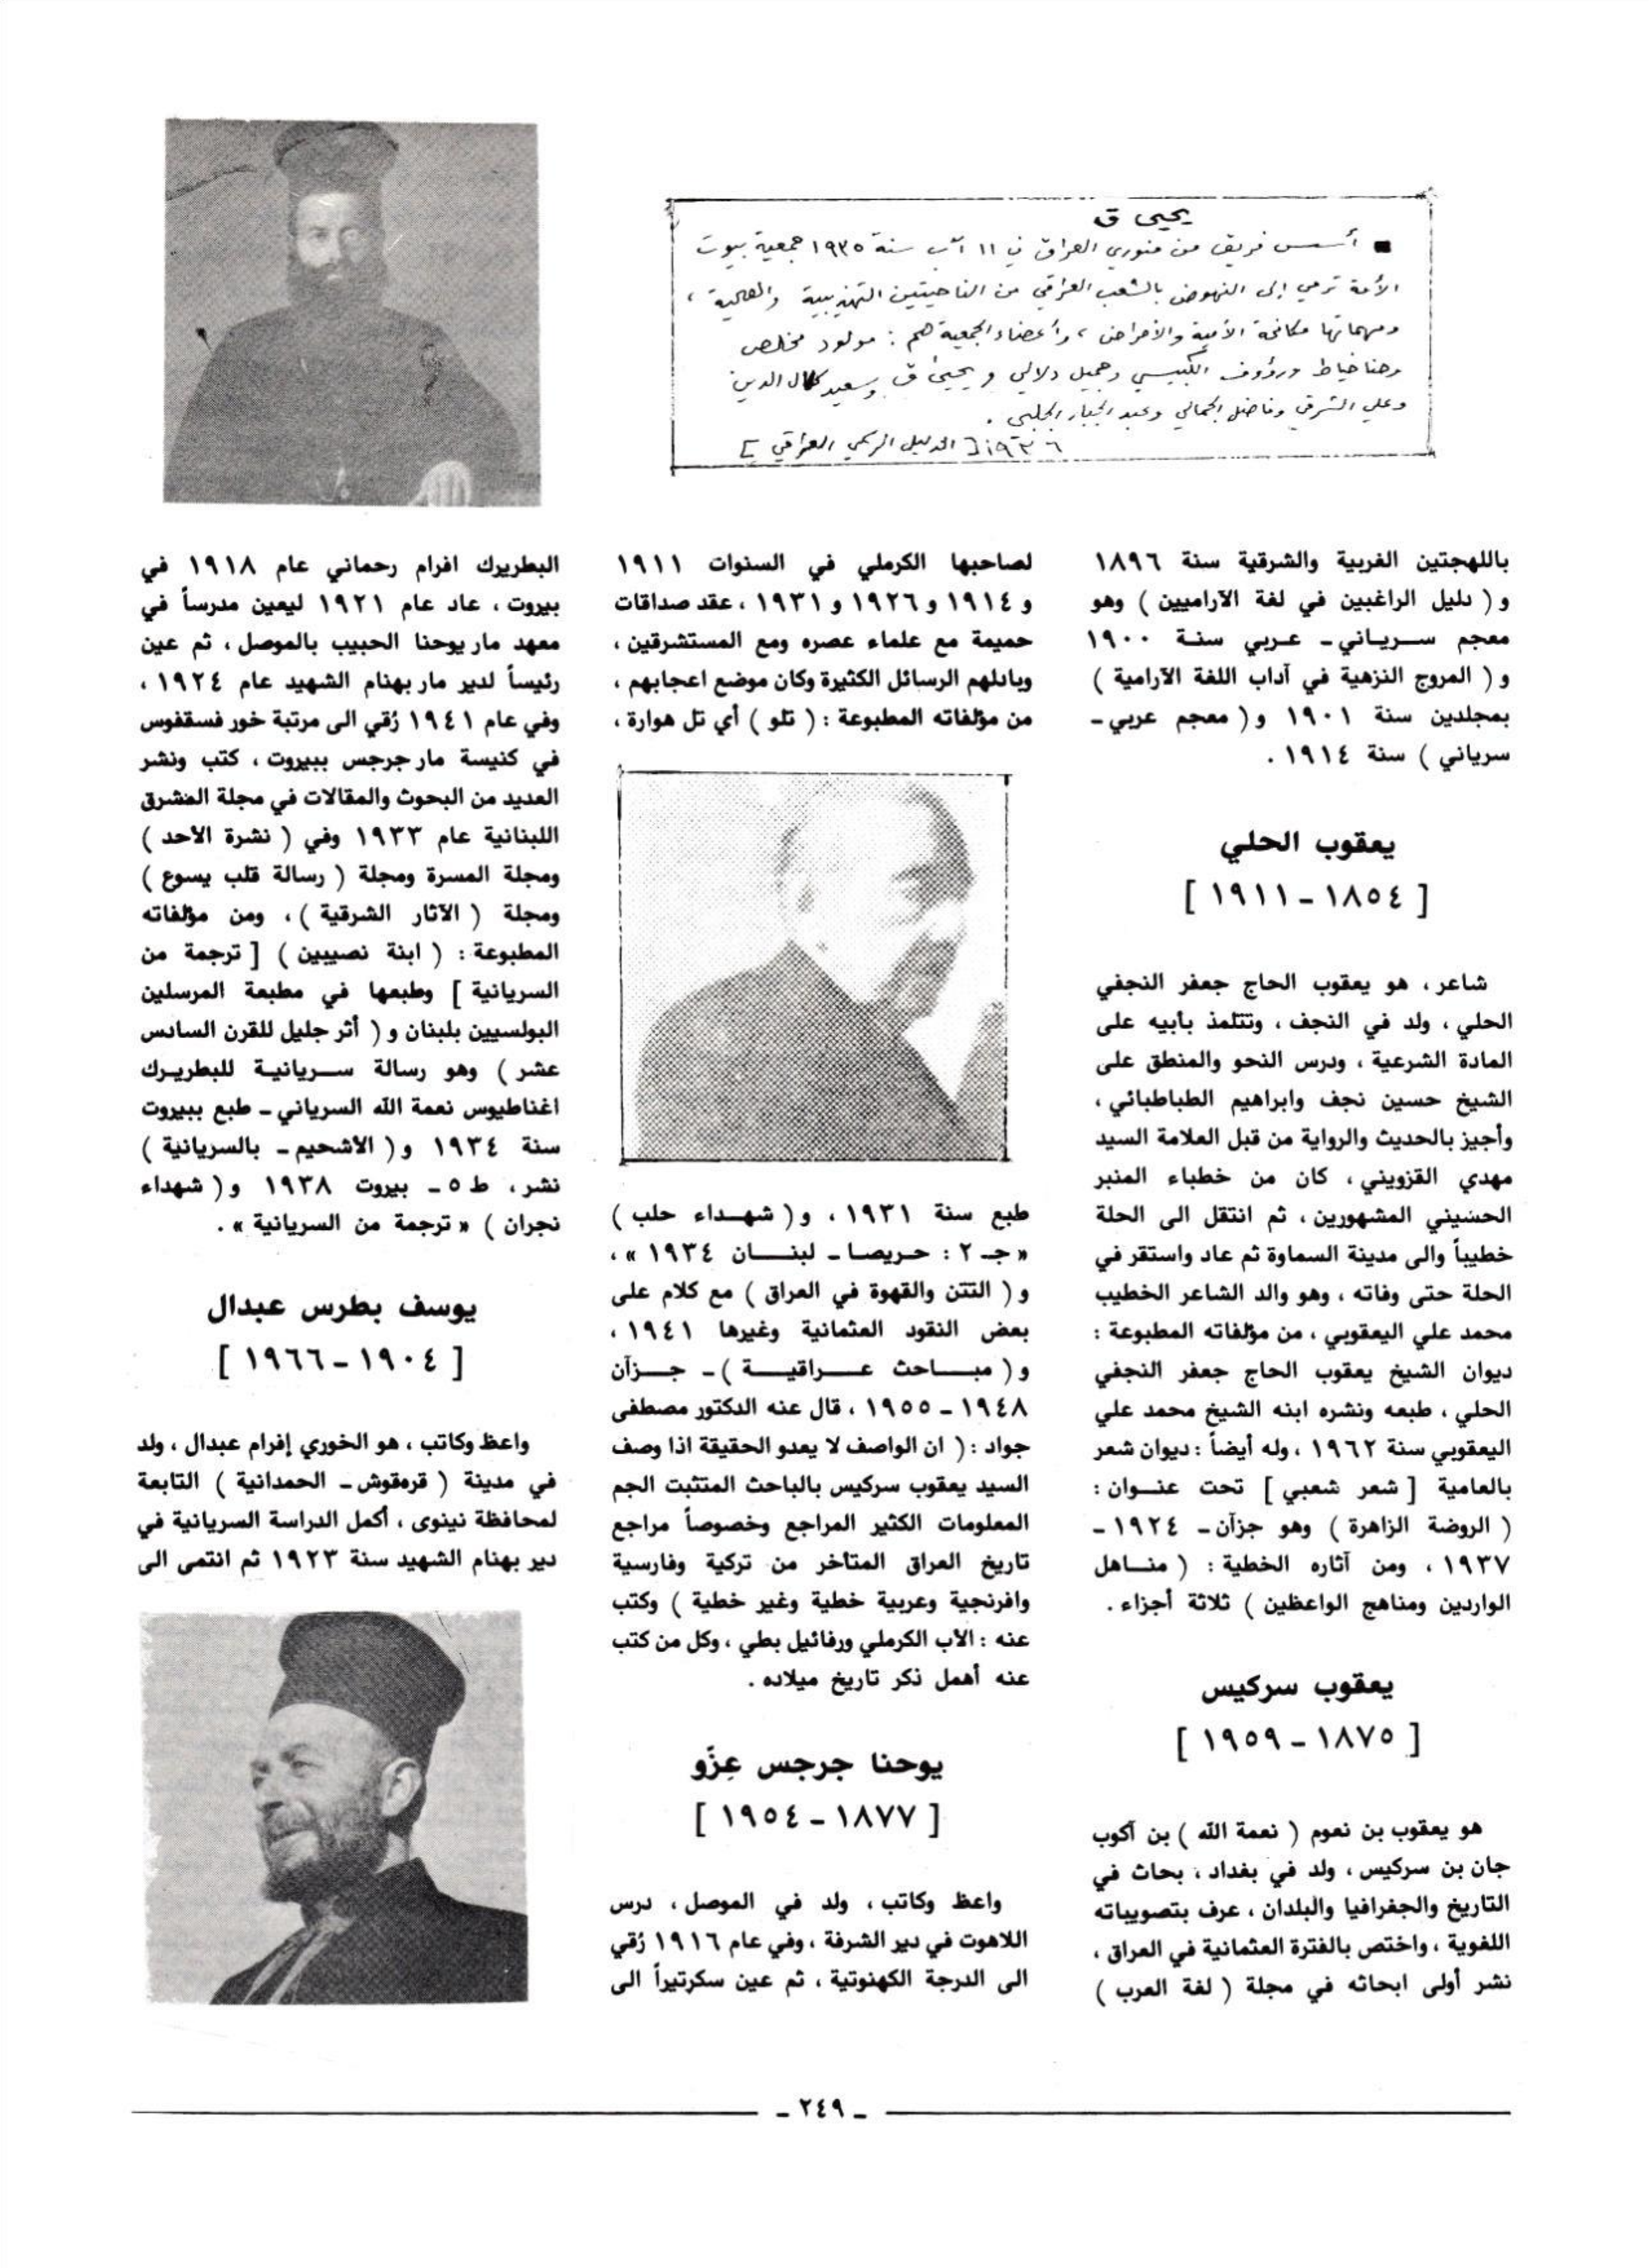 يحيى ق
■ أسس فريق من منوري العراق في ١١ آب سنة ١٩٣٥ جمعية بيوت
الأمة ترمي إلى النهوض بالشعب العراقي من الناحيتين التهذيبية والصحية ،
ومهماتها مكافحة الأمية والأمراض ، وأعضاء الجمعية هم : مولود مخلص
وحنا خياط ورؤوف الكبيسي وجميل دلالي ويحيى ق وسعيد كمال الدين
وعلي الشرقي وفاضل الجمالي وعبد الجبار الجلبي .
[ الدليل الرسمي العراقي ] ١٩٣٦
باللهجتين الغربية والشرقية سنة ١٨٩٦
و ( دليل الراغبين في لغة الآراميين ) وهو
معجم سـريـاني ـ عـربي سنـة ١٩٠٠
و ( المروج النزهية في آداب اللغة الآرامية )
بمجلدين سنة ١٩٠١ و ( معجم عربي ـ
سرياني ) سنة ١٩١٤ .
يعقوب الحلي
[ ١٨٥٤ ـ ١٩١١ ]
شاعر ، هو يعقوب الحاج جعفر النجفي
الحلي ، ولد في النجف ، وتتلمذ بأبيه على
المادة الشرعية ، ودرس النحو والمنطق على
الشيخ حسين نجف وابراهيم الطباطبائي ،
وأجيز بالحديث والرواية من قبل العلامة السيد
مهدي القزويني ، كان من خطباء المنبر
الحسيني المشهورين ، ثم انتقل الى الحلة
خطيباً والى مدينة السماوة ثم عاد واستقر في
الحلة حتى وفاته ، وهو والد الشاعر الخطيب
محمد علي اليعقوبي ، من مؤلفاته المطبوعة :
ديوان الشيخ يعقوب الحاج جعفر النجفي
الحلي ، طبعه ونشره ابنه الشيخ محمد علي
اليعقوبي سنة ١٩٦٢ ، وله أيضاً : ديوان شعر
بالعامية [ شعر شعبي ] تحت عنـوان :
( الروضة الزاهرة ) وهو جزآن ـ ١٩٢٤ ـ
١٩٣٧ ، ومن آثاره الخطية : ( منـاهل
الواردين ومناهج الواعظين ) ثلاثة أجزاء .
يعقوب سركيس
[ ١٨٧٥ ـ ١٩٥٩ ]
هو يعقوب بن نعوم ( نعمة الله ) بن آكوب
جان بن سركيس ، ولد في بغداد ، بحاث في
التاريخ والجغرافيا والبلدان ، عرف بتصويباته
اللغوية ، واختص بالفترة العثمانية في العراق ،
نشر أولى ابحاثه في مجلة ( لغة العرب )
لصاحبها الكرملي في السنوات ١٩١١
و ١٩١٤ و ١٩٢٦ و ١٩٣١ ، عقد صداقات
حميمة مع علماء عصره ومع المستشرقين ،
وبادلهم الرسائل الكثيرة وكان موضع اعجابهم ،
من مؤلفاته المطبوعة : ( تلو ) أي تل هوارة ،
طبع سنة ١٩٣١ ، و ( شهـداء حلب )
« جـ ٢ : حريصا ـ لبنـان ١٩٣٤ » ،
و ( التتن والقهوة في العراق ) مع كلام على
بعض النقود العثمانية وغيرها ١٩٤١ ،
و ( مبـاحث عـراقيـة ) ـ جـزآن
١٩٤٨ ـ ١٩٥٥ ، قال عنه الدكتور مصطفى
جواد : ( ان الواصف لا يعدو الحقيقة اذا وصف
السيد يعقوب سركيس بالباحث المتثبت الجم
المعلومات الكثير المراجع وخصوصاً مراجع
تاريخ العراق المتأخر من تركية وفارسية
وافرنجية وعربية خطية وغير خطية ) وكتب
عنه : الأب الكرملي ورفائيل بطي ، وكل من كتب
عنه أهمل ذكر تاريخ ميلاده .
يوحنا جرجس عِزّو
[ ١٨٧٧ ـ ١٩٥٤ ]
واعظ وكاتب ، ولد في الموصل ، درس
اللاهوت في دير الشرفة ، وفي عام ١٩١٦ رُقي
الى الدرجة الكهنوتية ، ثم عين سكرتيراً الى
البطريرك افرام رحماني عام ١٩١٨ في
بيروت ، عاد عام ١٩٢١ ليعين مدرساً في
معهد مار يوحنا الحبيب بالموصل ، ثم عين
رئيساً لدير مار بهنام الشهيد عام ١٩٢٤ ،
وفي عام ١٩٤١ رُقي الى مرتبة خور فسقفوس
في كنيسة مار جرجس ببيروت ، كتب ونشر
العديد من البحوث والمقالات في مجلة المشرق
اللبنانية عام ١٩٣٣ وفي ( نشرة الأحد )
ومجلة المسرة ومجلة ( رسالة قلب يسوع )
ومجلة ( الآثار الشرقية ) ، ومن مؤلفاته
المطبوعة : ( ابنة نصيبين ) [ ترجمة من
السريانية ] وطبعها في مطبعة المرسلين
البولسيين بلبنان و ( أثر جليل للقرن السادس
عشر ) وهو رسالة سـريانيـة للبطريـرك
اغناطيوس نعمة الله السرياني ـ طبع ببيروت
سنة ١٩٣٤ و ( الأشحيم ـ بالسريانية )
نشر ، ط ٥ ـ بيروت ١٩٣٨ و ( شهداء
نجران ) « ترجمة من السريانية » .
يوسف بطرس عبدال
[ ١٩٠٤ ـ ١٩٦٦ ]
واعظ وكاتب ، هو الخوري إفرام عبدال ، ولد
في مدينة ( قرەقوش ـ الحمدانية ) التابعة
لمحافظة نينوى ، أكمل الدراسة السريانية في
دير بهنام الشهيد سنة ١٩٢٣ ثم انتمى الى
ـ ٢٤٩ ـ